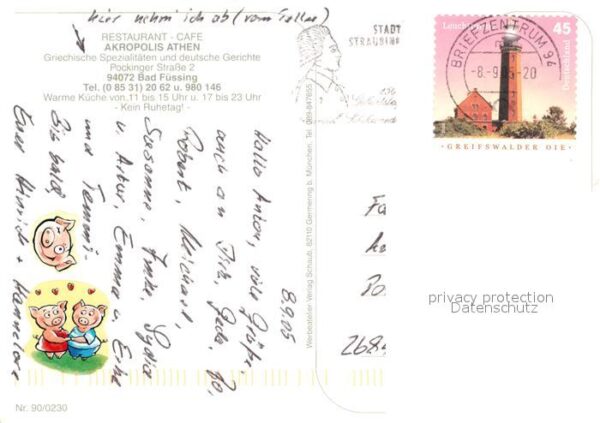 hier nehm ich ab (vom Teller)
RESTAURANT - CAFE
AKROPOLIS ATHEN
Griechische Spezialitäten und deutsche Gerichte
Pockinger Straße 2
94072 Bad Füssing
Tel. (0 85 31) 20 62 u. 980 146
Warme Küche von 11 bis 15 Uhr u. 17 bis 23 Uhr
- Kein Ruhetag! -
STADT
STRAUBING
BRIEFZENTRUM 94
-8.-9.05-20
45
Deutschland
· GREIFSWALDER OIE ·
8.9.05
Hallo Anton, viele Grüße
auch an Dich,
Robert, Michael,
Susanne, Imke, Lydia
u. Artur, Emma u. Eike
und Tammi.
Bis bald
Euer Hinrich + Hannelore
Werbeatelier-Verlag Schaub, 82110 Germering b. München, Tel. 089-847655
Nr. 90/0230
privacy protection
Datenschutz